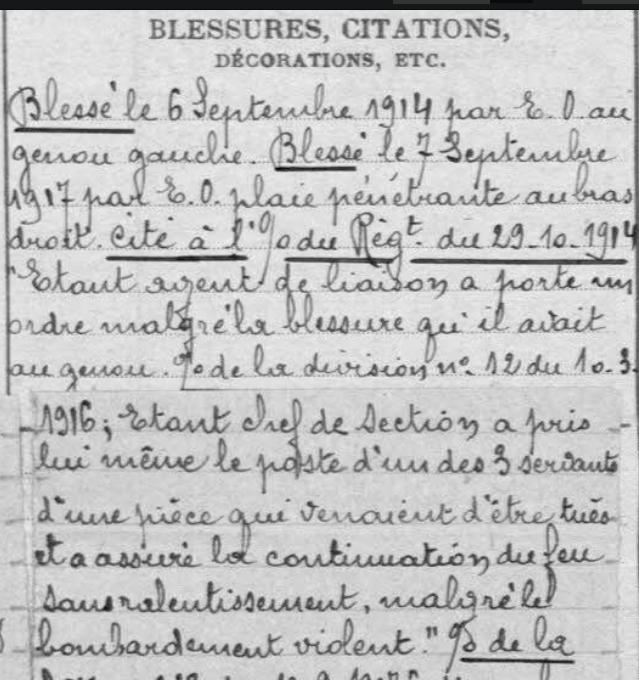 BLESSURES, CITATIONS,
DÉCORATIONS, ETC.
Blessé le 6 Septembre 1914 par E. O. au
genou gauche. Blessé le 7 Septembre
1917 par E. O. plaie pénétrante au bras
droit. Cité à l'%o du Règt. du 29-10-1914
"Etant agent de liaison a porte un
ordre malgré la blessure qu'il avait
au genou. %o de la division n° 12 du 10-3
1916; Etant chef de Section a pris
lui même le poste d'un des 3 servants
d'une pièce qui venaient d'être tués
et a assuré la continuation du feu
sans ralentissement, malgré le
bombardement violent." %o de la